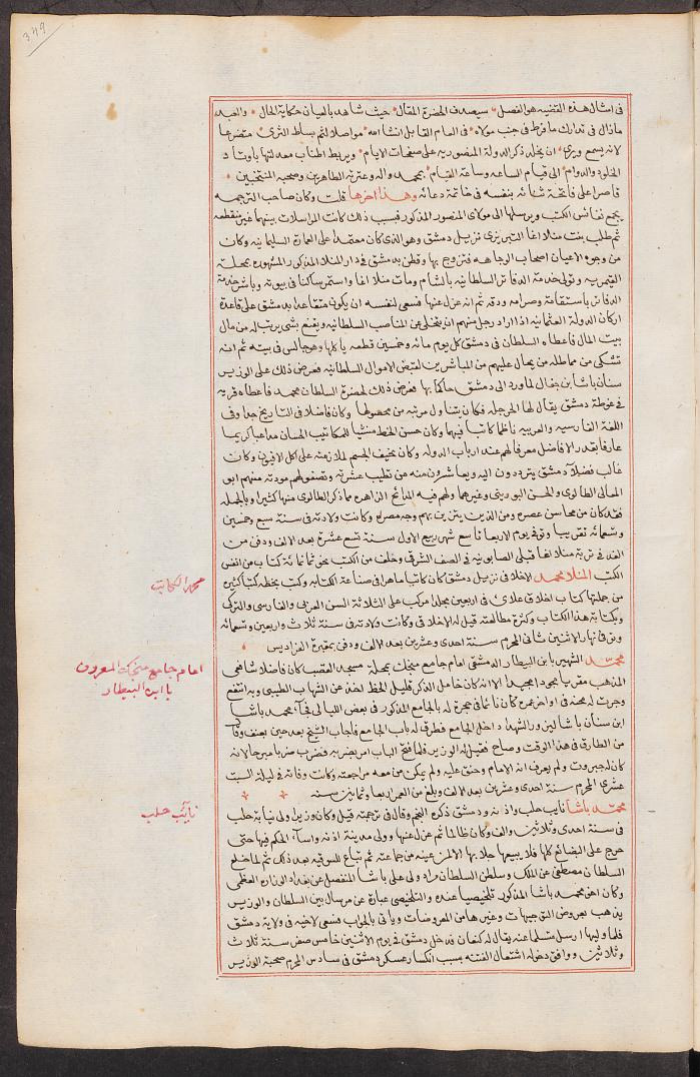 349
في امثال هذه القضيه هو الفصل سيصدف الحضرة المقال حيث شاهد بالعيان حكاية الحال والعبد
مازال في تدارك ما فرط في جنب مولاه في العام القابل انشا الله مواصلا لثم بساط الثرى متضرعا
لانه يسمع ويرى ان يخلد ذكر الدولة المنصوريه على صفحات الايام ويربط اطناب معدلتها باوتاد
الخلود والدوام الى قيام الساعه وساعة القيام بمحمد واله وعترته الطاهرين وصحبه المنتجبين
قاصرا على فاتحة شانه بنفسه في خاتمة دعائه وهذا اخرها قلت وكان صاحب الترجمه
يجمع نفائس الكتب ويرسلها الى مولاى المنصور المذكور فبسبب ذلك كانت المراسلات بينهما غير منقطعه
ثم طلب بنت منلا اغا التبريزى نزيل دمشق وهو الذى كان معتمدا على العمارة السليمانيه وكان
من وجوه الاعيان اصحاب الوجاهه فتزوج بها وقطن بدمشق في دار المنلا المذكور المشهوره بمحلة
القيمريه وتولى خدمة الدفاتر السلطانيه بالشام ومات منلا اغا واستمر ساكنا في بيوته وباشر خدمة
الدفاتر باستقامة وصرامه ودقه ثم انه عزل عنها فسعى لنفسه ان يكون متقاعدا بدمشق على قاعدة
اركان الدولة العثمانيه اذا اراد رجل منهم ان يتخلى عن المناصب السلطانيه ويقنع بشى يرتب له من مال
بيت المال فاعطاه السلطان في دمشق كل يوم مائه وخمسين قطعه ياكلها وهو جالس في بيته ثم انه
تشكى من مماطلة من يحال عليهم من المباشرين لقبض الاموال السلطانيه فعرض ذلك على الوزير
سنان باشا بن جغال لما ورد الى دمشق حاكما بها فعرض ذلك لحضرة السلطان محمد فاعطاه قريه
في غوطة دمشق يقال لها المرجله فكان يتناول مرتبه من محصولها وكان فاضلا في التاريخ جدا وفى
اللغة الفارسيه والعربيه ناظما كاتبا فيهما وكان حسن الخط منشيا للمكاتيب الحسان مداعبا كريما
عارفا بقدر الافاضل معرفا لهم عند ارباب الدوله وكان نحيف الجسم لملازمته على اكل الافيون وكانت
غالب فضلاء دمشق يترددون اليه ويعاشرون منه من تطيب عشرته وتصفو لهم مودته منهم ابو
المعالى الطالوى والحسن البورينى وغيرهما ولهم فيه المدائح الزاهره مما ذكر الطالوى منها كثيرا وبالجمله
فقد كان من محاسن عصره ومن الذين يتزين بهم وجه مصره وكانت ولادته في سنة سبع وخمسين
وتسعمائه تقريبا وتوفى يوم الاربعا تاسع شهر ربيع الاول سنة تسع عشرة بعد الالف ودفن من
الغد في تربة منلا اغا قبلى الصابونيه في الصف الشرقى وخلف من الكتب نحو ثمانمائة كتاب من انفس
الكتب المنلا محمد الاخلاقى نزيل دمشق كان كاتبا ماهرا في صناعة الكتابه وكتب بخطه كتبا كثيره
من جملتها كتاب اخلاق علائى في اربعين مجلدا مركب على الثلاثة السن العربى والفارسى والتركى
وبكتابة هذا الكتاب وكثرة مطالعته قيل له الاخلاقى وكانت ولادته في سنة ثلاث واربعين وتسعمائه
وتوفى نهار الاثنين ثانى المحرم سنة احدى وعشرين بعد الالف ودفن بمقبرة الفراديس
محمد الكاتب
محمد الشهير بابن البيطار الدمشقى امام جامع منجك بمحلة مسجد القصب كان فاضلا شافعى
المذهب مقريا مجودا مجيدا الا انه كان خامل الذكر قليل الحظ اخذ عن الشهاب الطيبى وبه انتفع
وجرت له محنه في اواخر عمره كان نائما في حجرة له بالجامع المذكور في بعض الليالى فجاء محمد باشا
ابن سنان باشا لينور الشهدا داخل الجامع فطرق له باب الجامع فاجاب الشيخ بعد حين بعنف وقال
من الطارق في هذا الوقت وصاح فقيل له الوزير فلما فتح الباب امر بضربه فضرب ضربا مبرحا لانه
كان له جبروت ولم يعرف انه الامام وحنق عليه ولم يمكن من معه مراجعته وكانت وفاته في ليلة السبت
عشرى المحرم سنة احدى وعشرين بعد الالف وبلغ من العمر اربعا وثمانين سنه
امام جامع منجك المعروف
بابن البيطار
محمد باشا نايب حلب واذنه ودمشق ذكره النجم وقال في ترجمته قيل وكان وزيرا ولى نيابة حلب
في سنة احدى وثلاثين والف وكان ظالما ثم عزل عنها وولى مدينة اذنه واساء الحكم فيها حتى
حرج على البضائع كلها فلا يبيعها جلابها الا لمن عينه من جماعته ثم تباع للسوقيه بعد ذلك ثم لما خلع
السلطان مصطفى عن الملك وسلطن السلطان مراد ولى على باشا المنفصل عن بغداد الوزاره العظمى
وكان اخى محمد باشا المذكور تلخيصيا عنده والتلخيصى عبارة عن مرسال بين السلطان والوزير
يذهب بعروض التوجيهات وغيرها من المعروضات وياتى بالجواب فسعى لاخيه في ولاية دمشق
فلما وليها ارسل متسلما عنه يقال له كنعان فدخل دمشق في يوم الاثنين خامس صفر سنة ثلاث
وثلاثين ووافق دخوله اشتعال الفتنه بسبب انكسار عسكر دمشق في سادس المحرم صحبة الوزير
نايب حلب